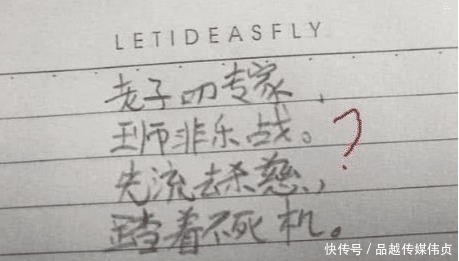 LETIDEASFLY
老子叨专家,
王师非乐战。
?
先流去杀慈,
着不死机。
快传号 / 品越传媒伟贞